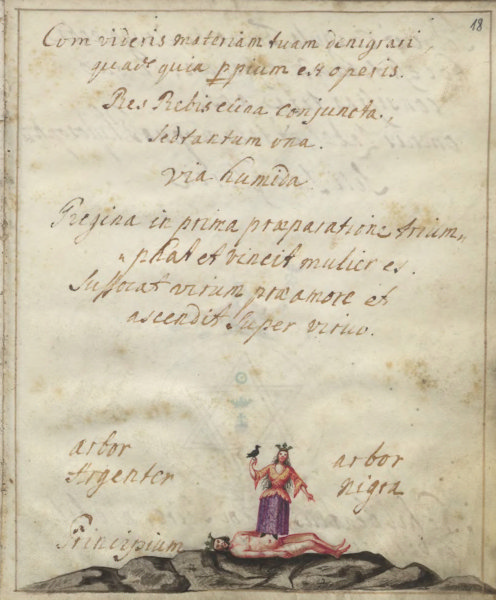 18
Com videris materiam tuam denigrari,
quade quia ppium est operis.
Res Rebis una conjuncta,
sed tantum una.
Via humida
Regina in prima præparatione trium„
„phat et vincit mulier es.
Suffocat virum præ amore et
ascendit super viruo.
arbor
Argenter
arbor
nigra
Principium